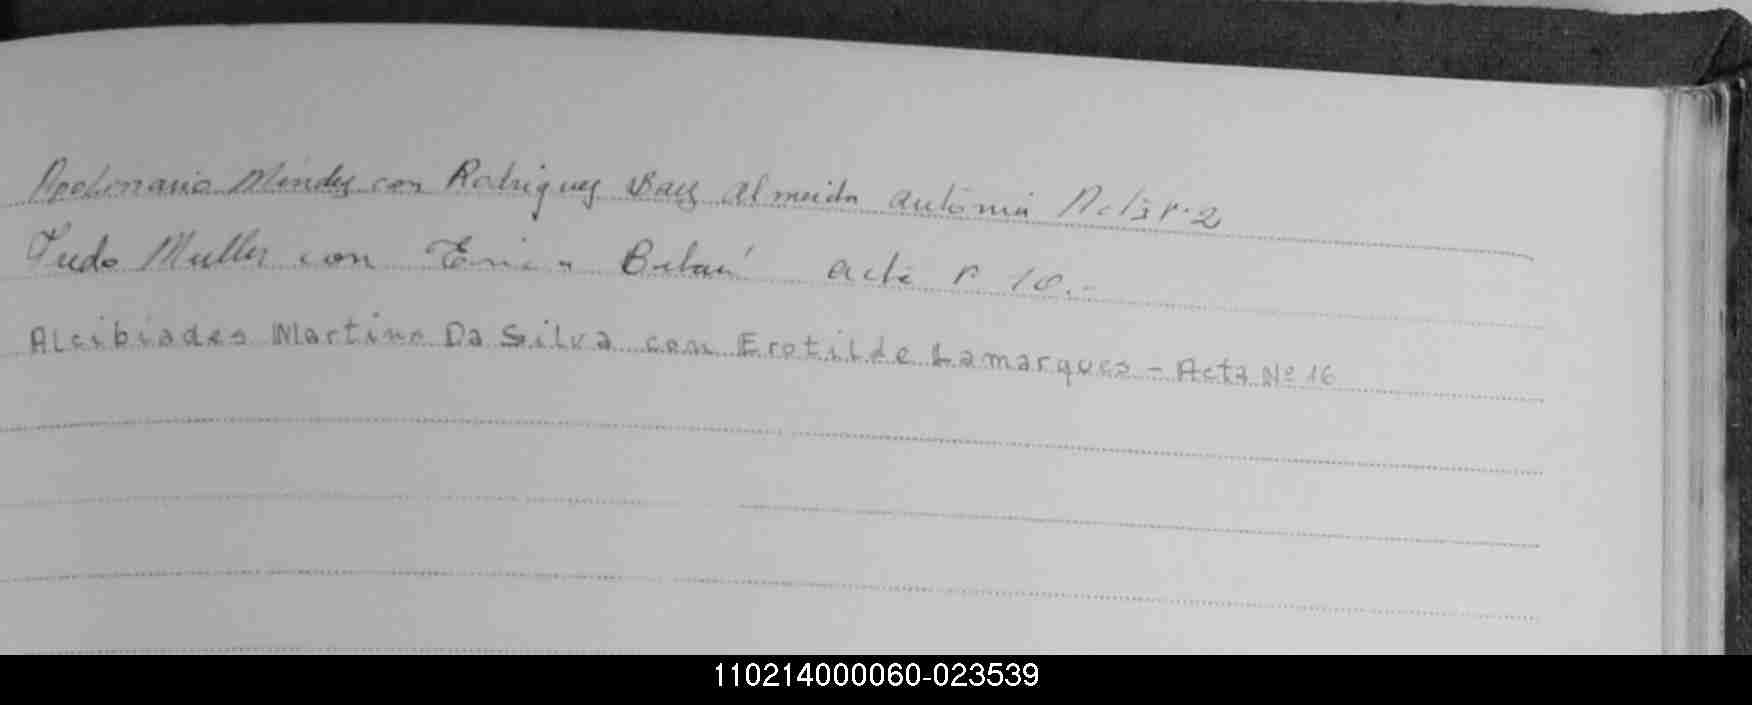 Apolinario Mendez con Rodriguez Baez Almeida Antonia Acta r. 2
Tudo Muller con acta r 10.-
Alcibiades Martins Da Silva con Erotilde Lamarques - Acta Nº 16
110214000060-023539